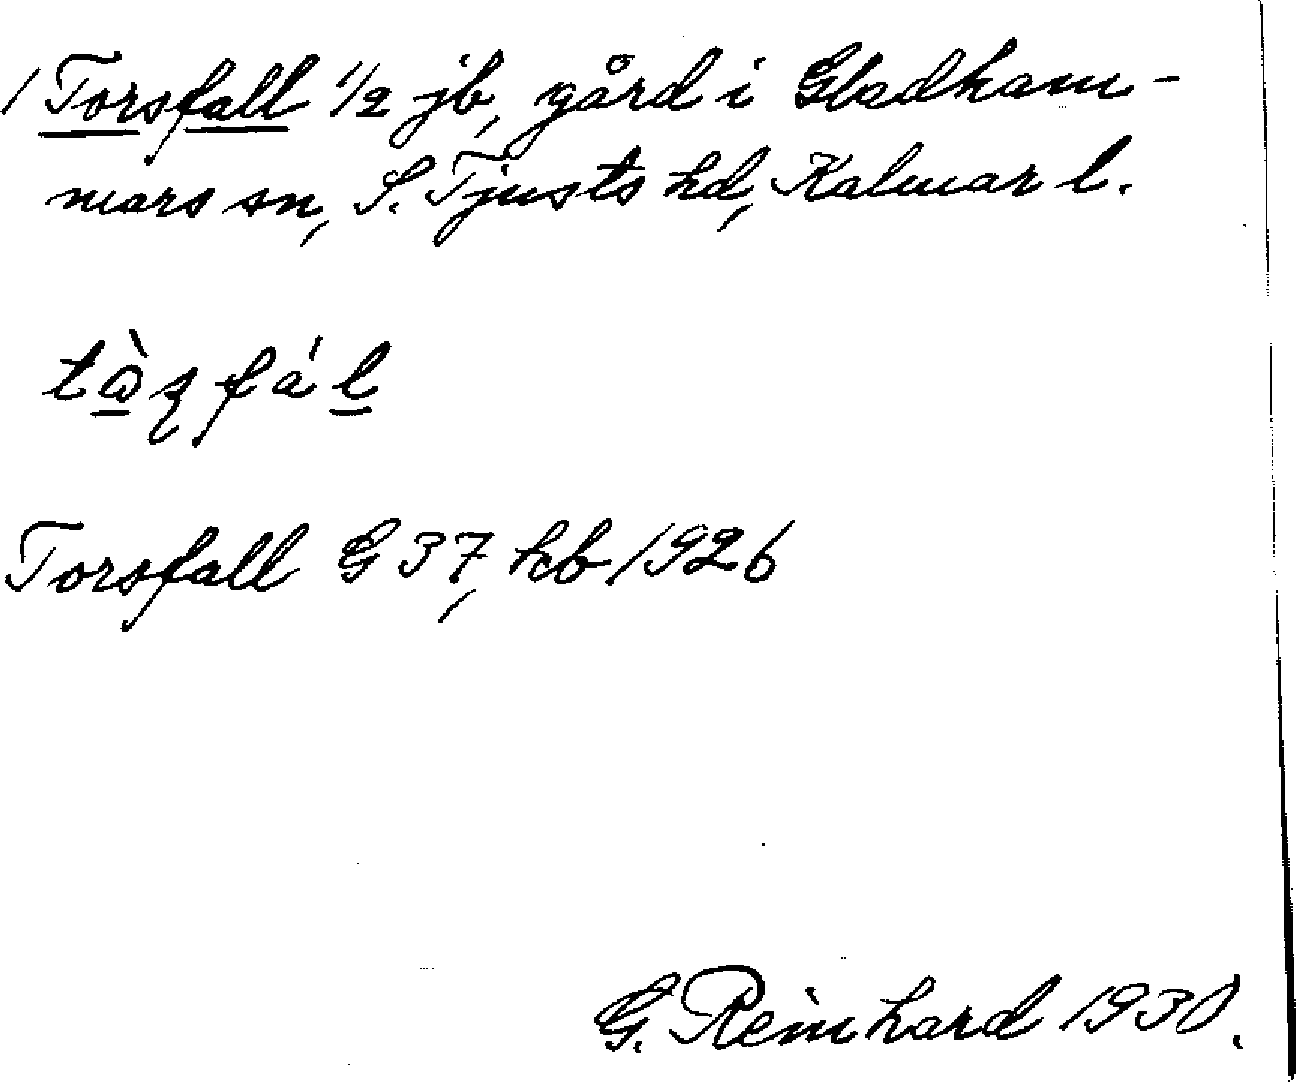 1 Torsfall 1/2 jb, gård i Gladham-
mars sn, S. Tjusts hd, Kalmar l.
Torsfall G 37, kb 1926
G. Reinhard 1930.